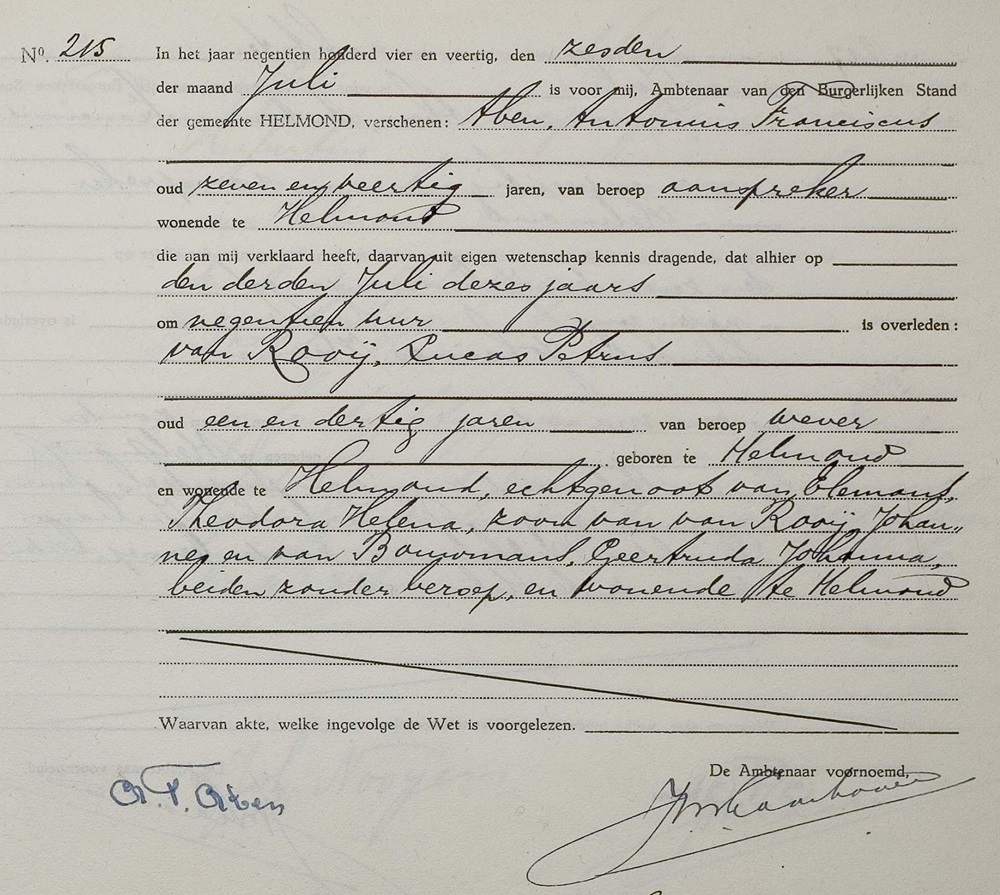 Nº. 215 In het jaar negentien honderd vier en veertig, den zesden
der maand Juli is voor mij, Ambtenaar van den Burgerlijken Stand
der gemeente HELMOND, verschenen: Aben, Antonius Franciscus
oud zeven en veertig jaren, van beroep aanspreker
wonende te Helmond
die aan mij verklaard heeft, daarvan uit eigen wetenschap kennis dragende, dat alhier op
den derden Juli dezes jaars
om negentien uur is overleden:
van Rooij, Lucas Petrus
oud een en dertig jaren van beroep wever
geboren te Helmond
en wonende te Helmond, echtgenoot van Elemans,
Theodora Helena, zoon van van Rooij, Johan„
nes en van Bouwmans, Geertruda Johanna,
beiden zonder beroep, en wonende te Helmond
Waarvan akte, welke ingevolge de Wet is voorgelezen.
De Ambtenaar voornoemd,
A. F. Aben